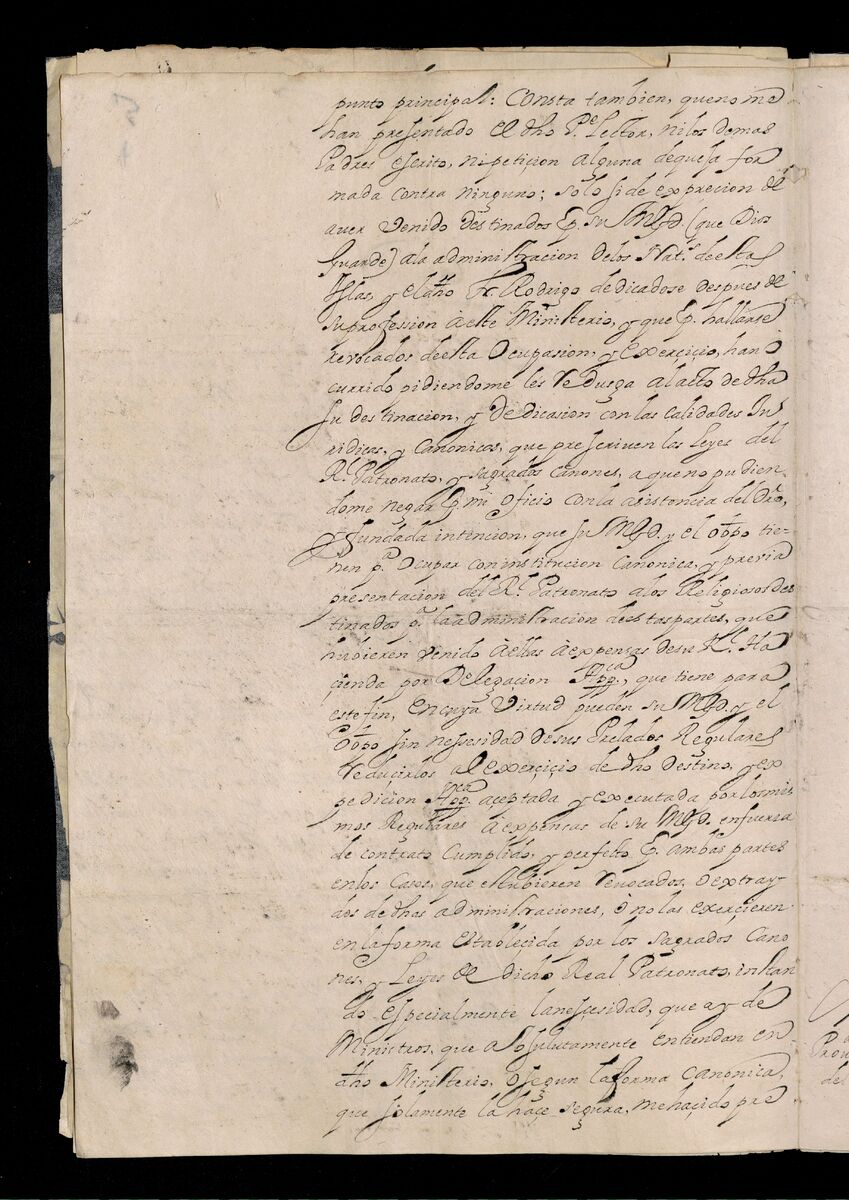 punto principal: Consta tambien, queno me
han presentado el dho P.e Lector, nilos demas
Padres escrito, nipeticion alguna dequeja for
mada contra ninguno; solo si de exprecion de
auer venido destinados p. su Mgd. (que Dios
Guarde) ala administracion delos Nat.s deesta
Yslas, y el dho Fr. Rodrigo dedicadose despues de
suprofession à este Ministerio, y que p. hallarse
revocados deesta Ocupasion, y exerçiçio, han
currido pidiendome les reduzga al acto de dha
su destinacion, y Dedicasion con las calidades Ju
ridicas, y Canonicas, que prescriven las Leyes del
R.l Patronato, y sagrados Canones, a queno pudien
dome negar p. mi Oficio conla asistencia del Dro,
y fundada intencion, que su Mgd. y el Obpo tie-
nen p.a Ocupar coninstitucion Canonica, y previa
presentacion del R.l Patronato alos Religiosos des
tinados p.a la administracion deestaspartes, que
hubieren venido àellas àexpensas desu R.l Ha
çienda por Delegacion App.ca, que tiene para
este fin, Encuya Virtud pueden su Mgd. y el
Obpo sin nessesidad desus Prelados Regulares
reduçirlos al exerçiçio de dho Destino, y ex
pediçion App.ca aceptada y executada porlosmis
mos Regulares àexpensas de su Mgd. enfuerza
de contrato Cumplido, y perfecto p. ambas partes
enlos Casos, que estubieren revocados, ò extray
dos de dhas administraciones, ò no las exerçieren
enlaforma establecida por los sagrados Cano
nes, y Leyes de dicho Real Patronato, instan
do especialmente lanesçesidad, que ay de
Ministros, que absolutamente entiendan en
dho Ministerio, ò segun laforma Canonica,
que solamente la haçe segura, mehaçido pre